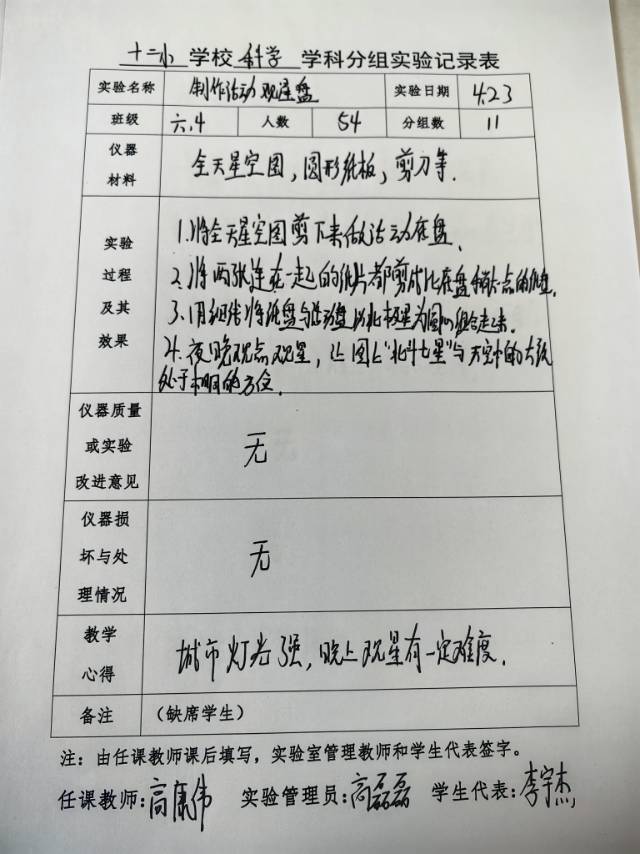 十二小 学校 科学 学科分组实验记录表
实验名称 制作活动观星盘 实验日期 4.23
班级 六.4 人数 54 分组数 11
仪器材料 全天星空图，圆形纸板，剪刀等．
实验过程及其效果 1.将全天星空图剪下来做活动底盘．
2.将两张连在一起的纸片都剪成比底盘稍大点的纸盘．
3.用细线将底盘与活动盘以北极星为圆心组合起来．
4.夜晚观点观星，让图上“北斗七星”与天空中的大致
处于相同的方位．
仪器质量或实验改进意见 无
仪器损坏与处理情况 无
教学心得 城市灯光强，晚上观星有一定难度．
备注 （缺席学生）
注：由任课教师课后填写，实验室管理教师和学生代表签字。
任课教师：高康伟 实验管理员：高磊磊 学生代表：李宇杰